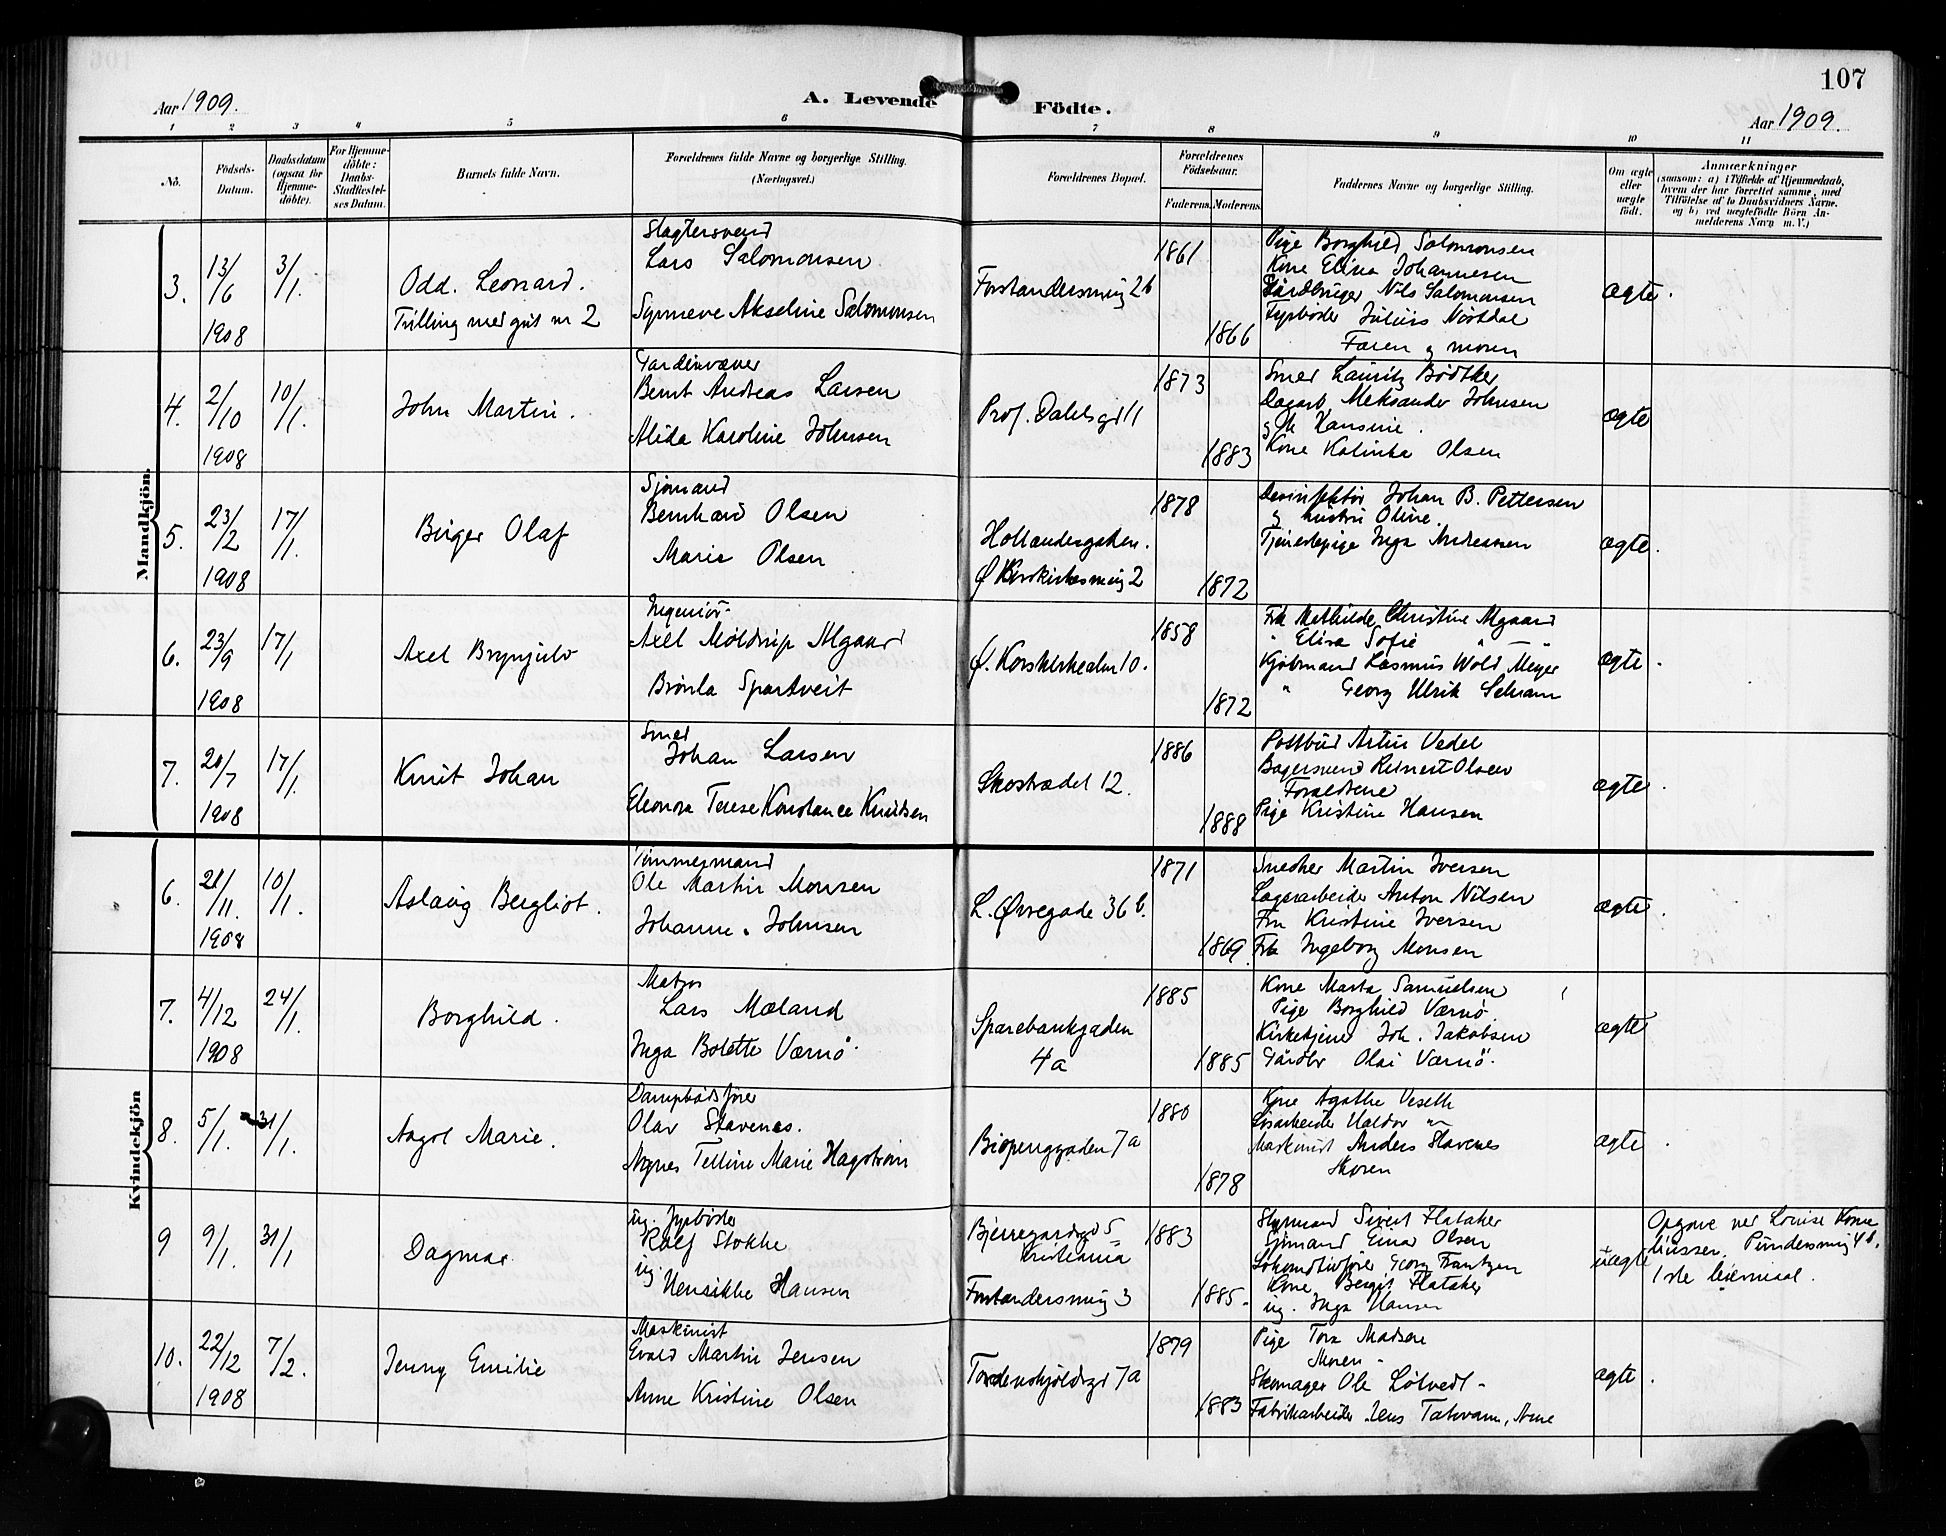 107
Aar 1909.
A. Levende Födte.
Aar 1909.
1 2 3 4 5 6 7 8 9 10 11
No.
Födsels-Datum.
Daabsdatum (ogsaa for Hjemme-döbte).
For Hjemme-döbte: Daabs-Stadfæstel-ses Datum.
Barnets fulde Navn.
Forældrenes fulde Navne og borgerlige Stilling. (Næringsvei.)
Forældrenes Bopæl.
Forældrenes Födselsaar.
Faderens. Moderens.
Faddernes Navne og borgerlige Stilling.
Om ægte eller uægte födt.
Anmærkninger
(saasom: a) i Tilfælde af Hjemmedaab, hvem der har forrettet samme, med Tilföielse af to Daabsvidners Navne, og b) ved uægtefödte Börn An-melderens Navn m. V.)
Mandkjön.
3. 13/6 1908 3/1.
Odd. Leonard.
Trilling med gut nr 2
Slagtersvend
Lars Salomonsen
Synneve Akseline Salomonsen
Forstandersmug 2b
1861
1866
Pige Borghild Salomonsen
Kone Elina Johannesen
Gårdbruger Nils Salomonsen
Fyrbøder Julius Nøstdal
Faren og moren
ægte.
4. 2/10 1908 10/1.
John Martin.
Gardinvæver
Bernt Andreas Larsen
Alida Karoline Johnsen
Prof. Dahlsgt 11
1873
1883
Smed Lauritz Bødtker
Dagarb Aleksander Johnsen
og h Hansine.
Kone Kalinka Olsen
ægte
5. 23/2 1908 17/1.
Birger Olaf
Sjømand
Bernhard Olsen
Marie Olsen
Hollandergaten.
Ø Korskirkesmug 2
1878
1872
Desinfektør Johan B. Pettersen
og hustru Oline.
Tjenestepige Inga Andreassen
ægte.
6. 23/9 1908 17/1
Axel Brynjulv
Ingeniør
Axel Møldrup Algaard
Brønla Spartveit
Ø. Korskirkealm 10.
1858
1872
Frk Mathilde Christine Algaard
" Elisa Sofie " —
Kjøbmand Rasmus Wold Meyer
" Georg Ulrik Schram
ægte.
7. 20/7 1908 17/1.
Knut Johan
Smed
Johan Larsen
Eleonora Terese Konstance Knudsen
Skostrædet 12.
1886
1888
Postbud Artur Vedel
Bagersvend Reinert Olsen
Forældrene
Pige Kristine Hansen
ægte.
Kvindekjön
6. 21/11. 1908 10/1.
Aslaug Bergliot.
Tømmermand
Ole Martin Monsen
Johanne. Johnsen
L. Øvregade 36 b.
1871
1869.
Snedker Martin Iversen
Lagerarbeider Anton Nilsen
Fru Kristine Iversen
Frk Ingeborg Monsen
ægte.
7. 4/12 1908 24/1.
Borghild.
Matros
Lars Mæland
Inga Bolette Værnö
Sparebankgaden
4a
1885
1885
Kone Marta Samuelsen
Pige Borghild Værnö
Kirketjener Joh. Jakobsen
Gårdbr Olai Værnö.
ægte
8. 5/1. 31/1.
Aagot Marie.
Dampbådsfører
Olav Stavenes.
Agnes Telline Marie Hagstrøm
Bispenggaden 7a
1880
1878
Kone Agathe Veseth
Løsarbeider Haldor "
Maskinist Anders Stavenes
Moren
ægte.
9 9/1. 31/1
Dagmar.
ug. fyrbøder
Rolf Stokke
ug.
Henrikke Hansen
Bjerregaardsgd 5
Kristiania
Forstandersmug 3
1883
1885.
Styrmand Sivert Flataker
Sjømand Einar Olsen
Lokomotivfører Georg Frantzen
Kone Bergit Flataker
ug. Inga Hansen
uægte
Opgave ved Louise
Pundersmug 4 b.
1ste leiermaal.
10. 22/12 1908 7/2.
Jenny Emilie
Maskinist
Evald Martin Jensen
Anne Kristine Olsen
Tordenskjoldsgt 7a
1879
1883
Pige Tora Madsen
Moren -
Skomager Ole Løtvedt -
Fabrikarbeider Jens Tatovam, Arne
ægte.